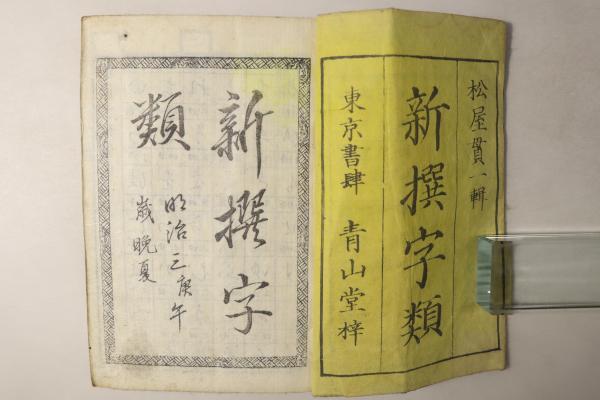 松屋貫一輯
新撰字類
東京書肆 青山堂梓
新撰字
類
明治三庚午
歳晩夏